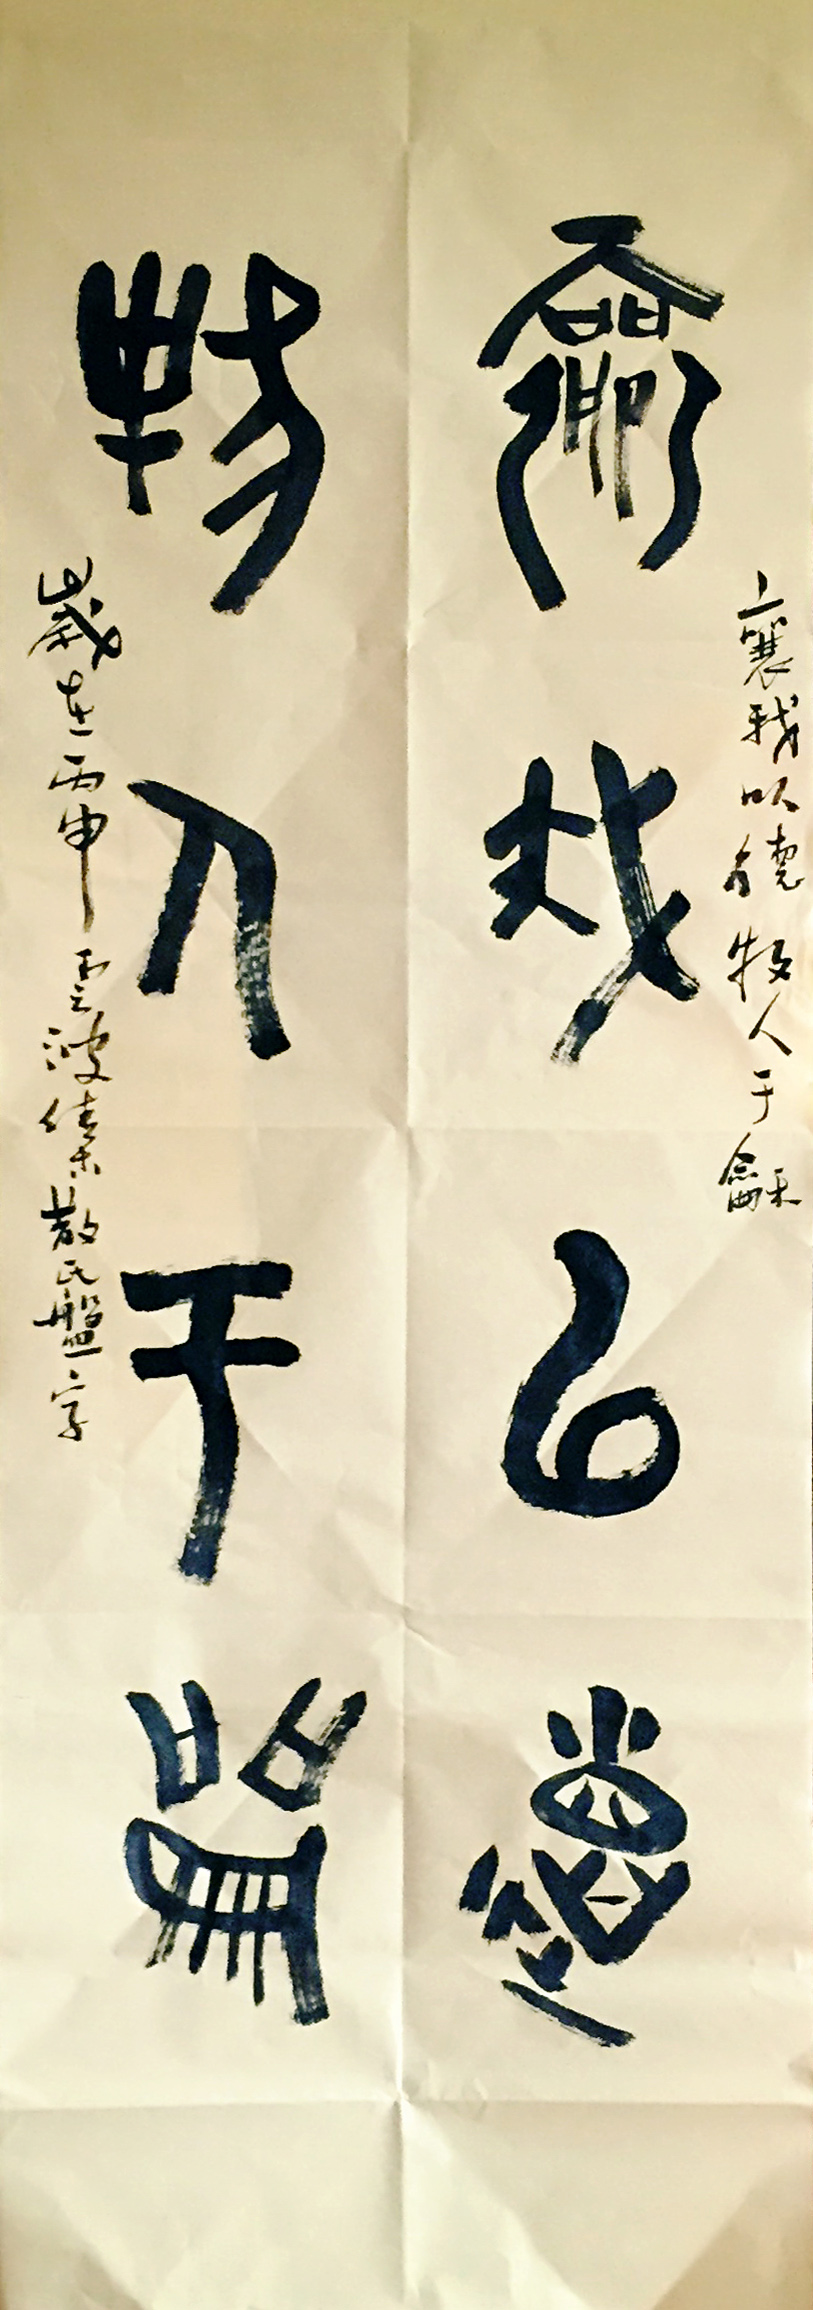 襄我以德牧人于龢
襄我以德
牧人于龢
歲在丙申雲波集散氏盤字